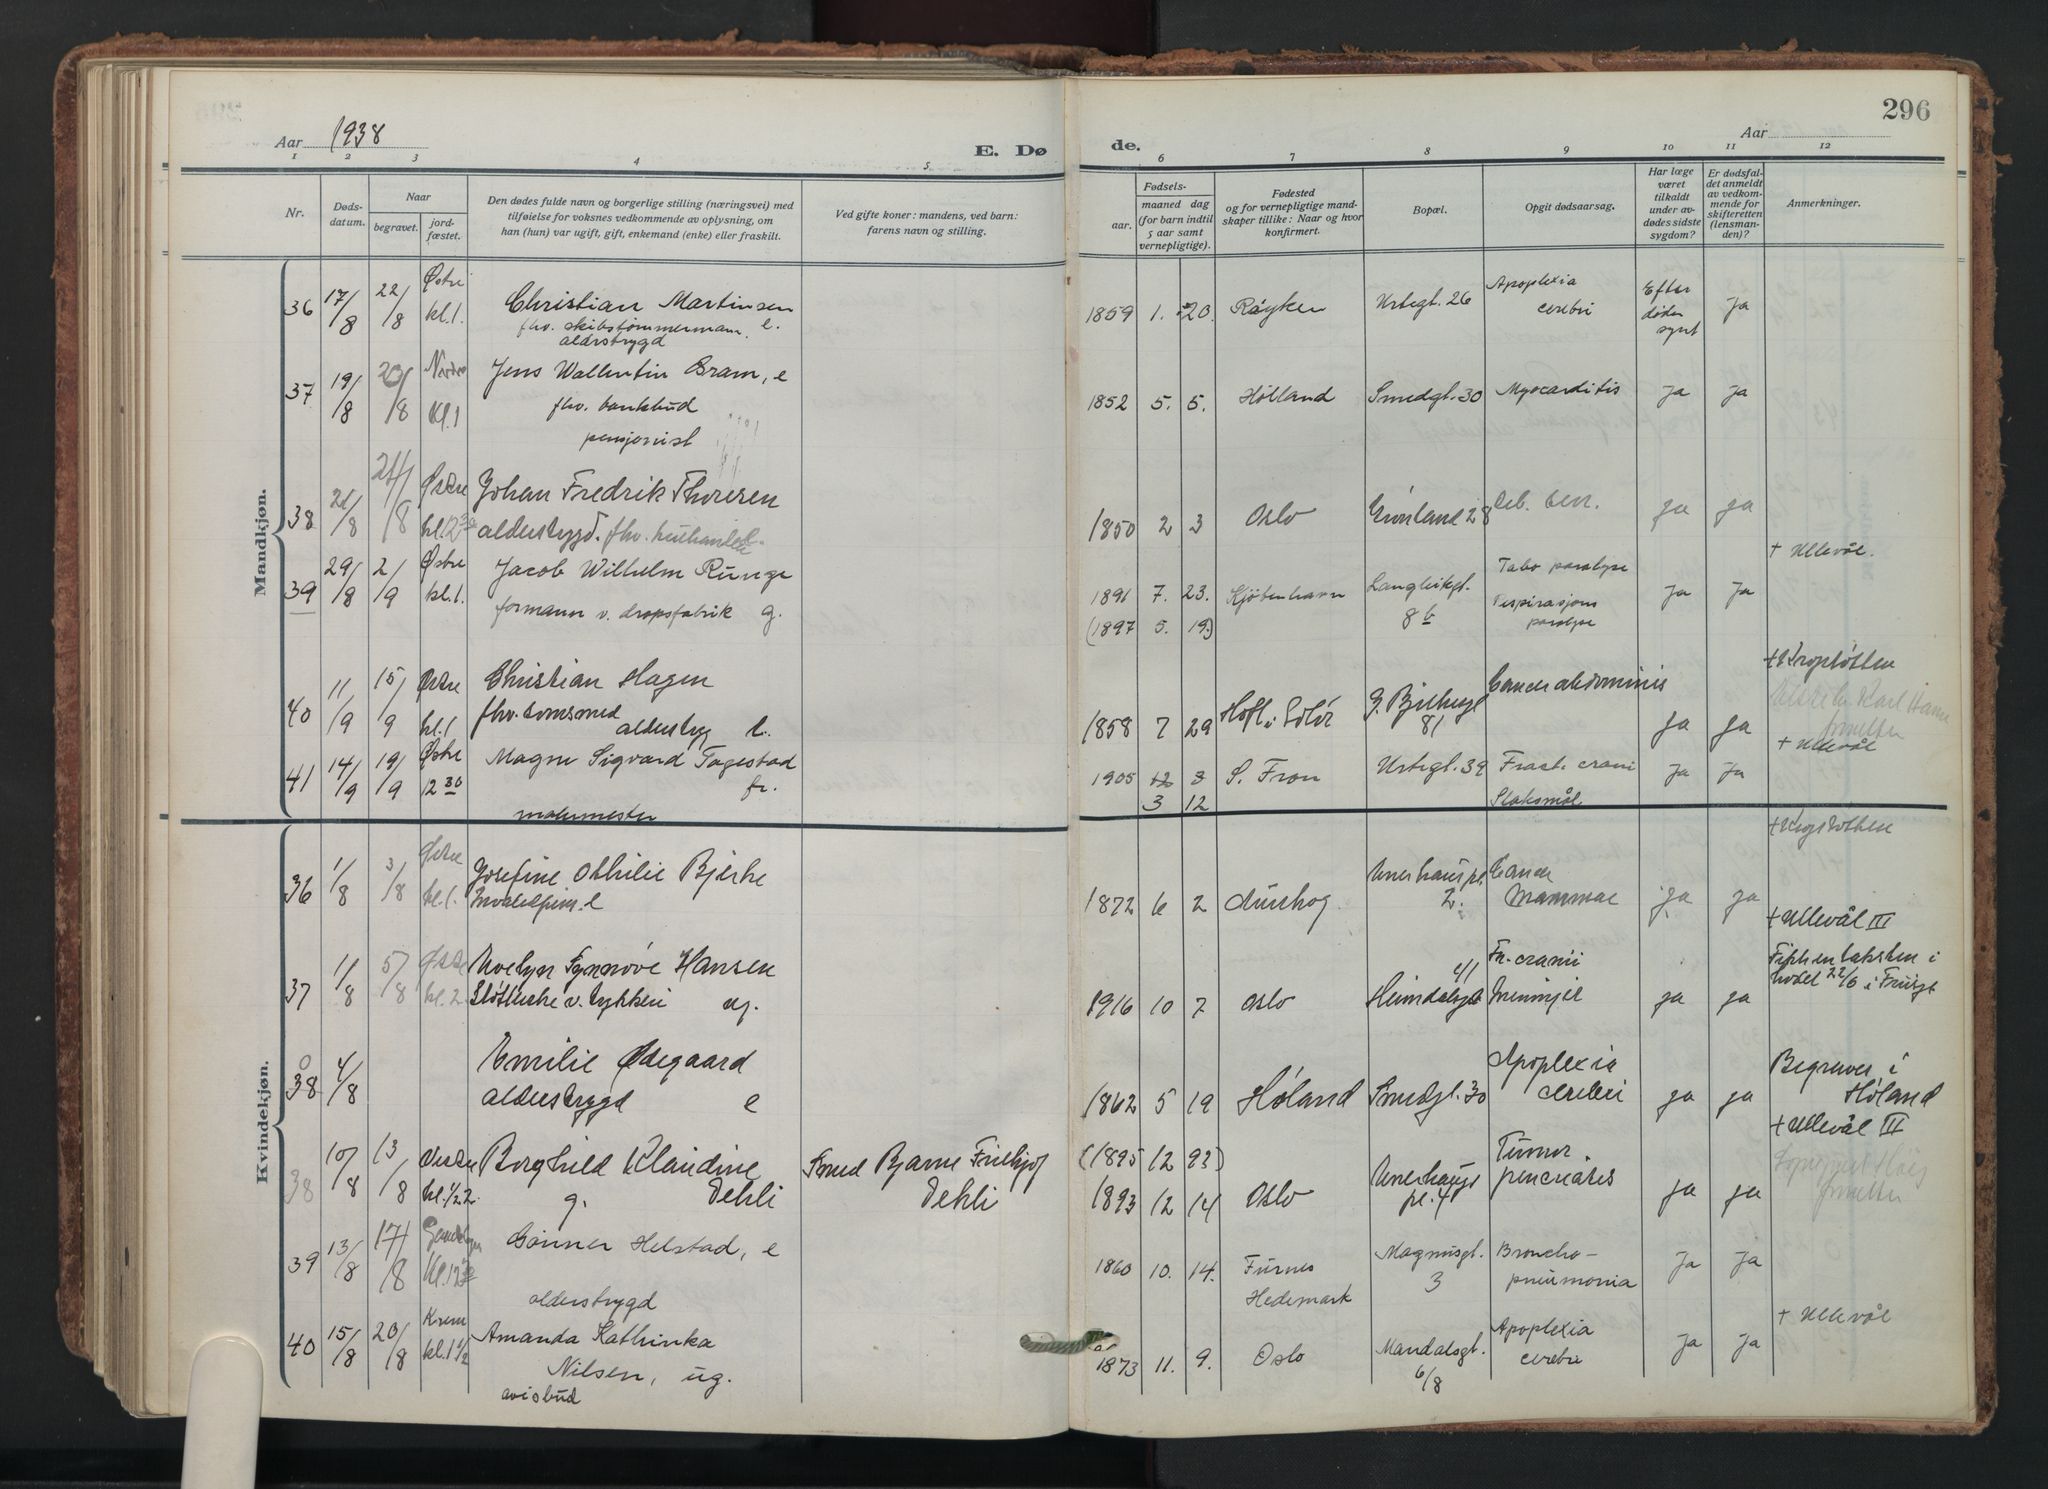 296
Aar 1938
E. Dø
de.
Aar
1 2 3 4 5 6 7 8 9 10 11 12
Nr.
Døds-
datum.
Naar
begravet.
jord-
fæstet.
Den dødes fulde navn og borgerlige stilling (næringsvei) med
tilføielse for voksnes vedkommende av oplysning, om
han (hun) var ugift, gift, enkemand (enke) eller fraskilt.
Ved gifte koner: mandens, ved barn:
farens navn og stilling.
Fødsels-
aar.
maaned dag
(for barn indtil
5 aar samt
vernepligtige).
Fødested
og for vernepligtige mand-
skaper tillike: Naar og hvor
konfirmert.
Bopæl.
Opgit dødsaarsag.
Har læge
været
tilkaldt
under av-
dødes sidste
sygdom?
Er dødsfal-
det anmeldt
av vedkom-
mende for
skifteretten
(lensman-
den)?
Anmerkninger.
Mandkjøn.
36 17/8 22/8 Østre kl.1. Christian Martinsen 1859 1. 20. Røyken Urtegt. 26 Apoplexia cerebri Efter døden synt Ja
fhv. skibstømmermann, e.
alderstrygd
37 19/8 20/8 Nordre Kl.1 Jens Wallentin Bram, e 1852 5. 5. Hölland Smedgt. 30 Myocarditis Ja Ja
fhv. bankbud
pensjonist
38 21/8 24/8 Østre kl. 12 30 Johan Fredrik Thoresen 1850 2 3 Oslo Grønland 28 Deb. Cerr. ja ja
alderstrygd. fhv.
39 29/8 2/9 Østre kl.1. Jacob Wilhelm Runge 1891 7. 23. Kjøbenhavn Langleikgt. 8 b Tabo paralyse Ja Ja + Ullevål.
formann v. dropsfabrik g. (1897 5. 19.) Respirasjons paralyse
40 11/9 15/9 Østre kl.1 Christian Hagen 1858 7 29 Hof i Solör G. Bjelkesgt 81 Cancer abdominis ja ja
fhv. tomsmed alderstryg e.
41 14/9 19/9 Østre 12 30 Magne Sigvard Fagestad fr. 1905 12 8 S. Fron Urtegt. 39 Fract. crani Ja Ja + Ullevål
malermester 3 12 Slaksmål.
Kvindekjøn.
36 1/8 3/8 Østre kl.1. Josefine Othilie Bjerke 1872 6 2 Aurskog 2. Cancer Mammae ja ja
Invalidpens. e
37 1/8 5/8 Østre kl.2. Evelyn Synnøve Hansen 1916 10 7 Oslo Heimdalsgt 41 Fr. cranii Meninget ja ja + Ullevål III
v. trykkeri ug. i hodet 22/6 i
38 0 4/8 Emilie Ødegaard 1862 5 19 Höland Smedgt. 30 Apoplexia cerebri ja ja Begraves i Höland
alderstrygd e
38 10/8 13/8 Vestre kl. 1/2 2. Borghild Klaudine Dehli g. Smed Bjarne Fridtjof Dehli (1895 12 93) 1893 12 14 Oslo Enerhaugs pl. 4 Tumor pencreates ja ja + Ullevål III
39 13/8 17/8 Kl. 12 30 Gunner Helstad, e 1860 10. 14. Furnes Hedemark Magnusgt. 3 Broncho-pneumonia Ja Ja
alderstrygd
40 15/8 20/8 Krem kl. 1 1/2 Amanda Kathinka Nilsen, ug. 1873 11. 9. Oslo Mandalsgt. 6/8 Apoplexia cerebri Ja Ja + Ullevål
avisbud